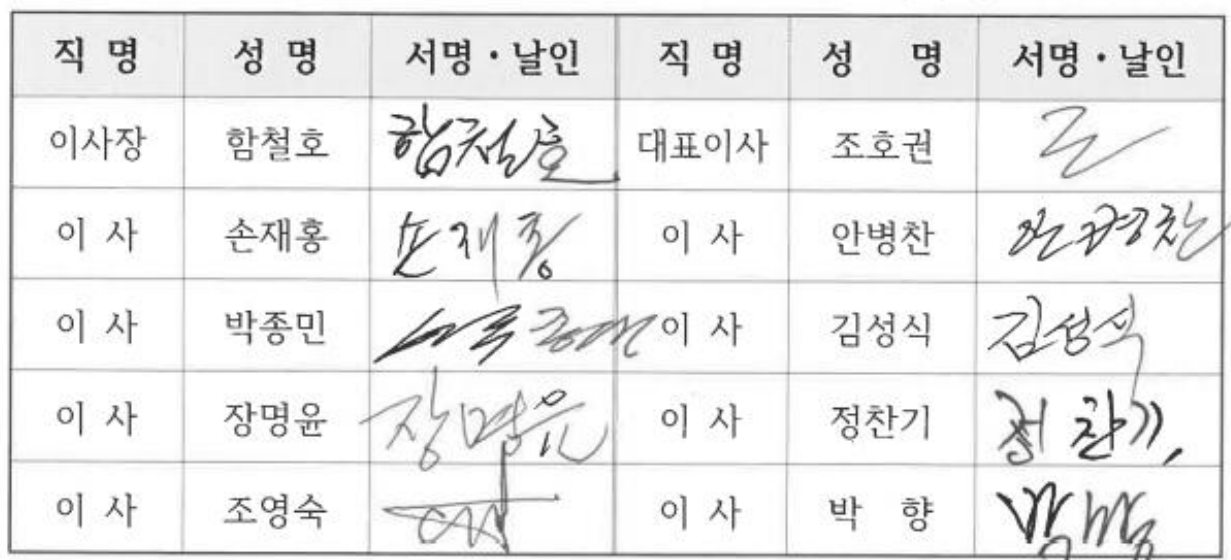 직 명 성 명 서명·날인 직 명 성 명 서명·날인
이사장 함철호 함철호 대표이사 조호권
이 사 손재홍 손재홍 이 사 안병찬 안병찬
이 사 박종민 이 사 김성식 김성식
이 사 장명윤 장명윤 이 사 정찬기 정찬기
이 사 조영숙 이 사 박 향